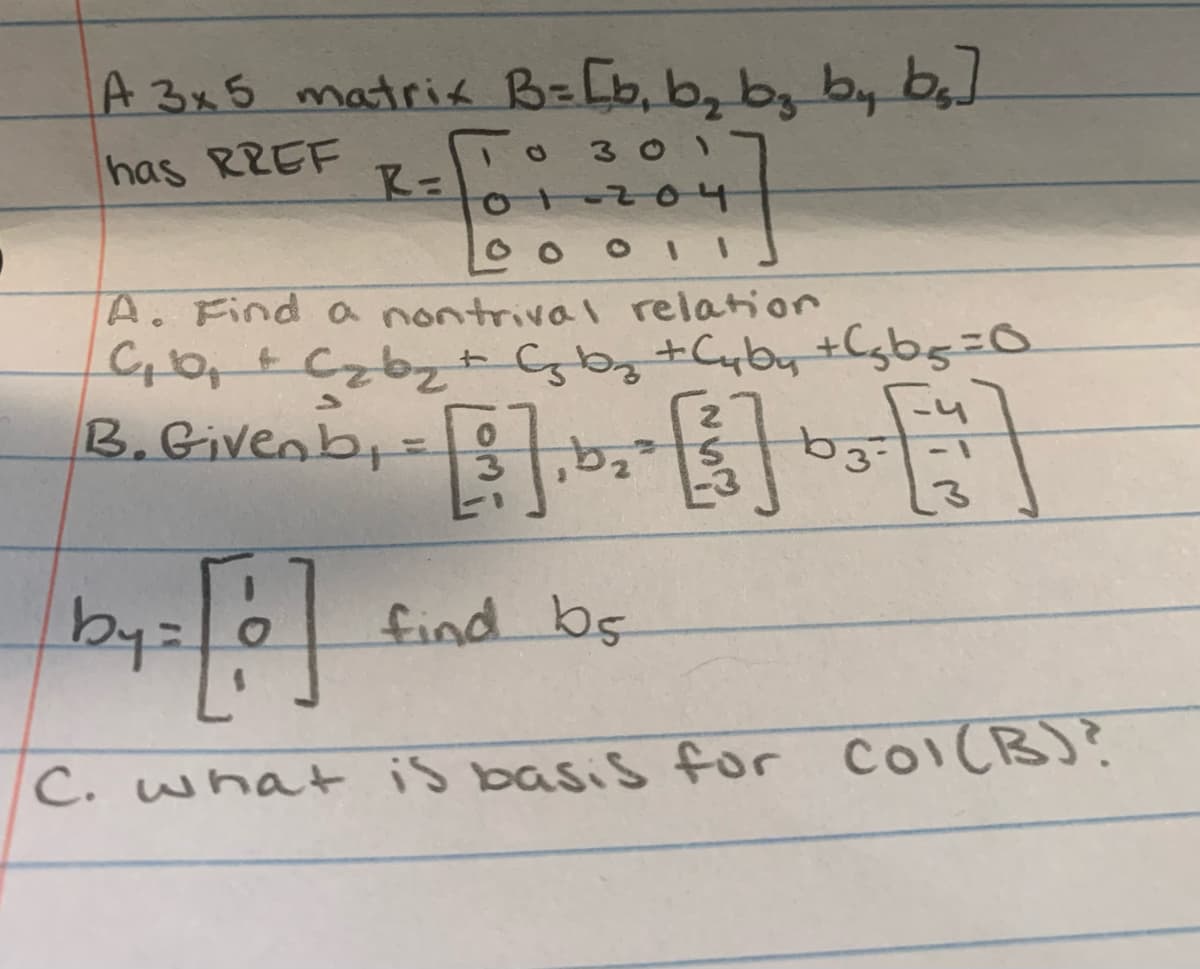 A 3x5 matrix B=[b₁ b₂ b₃ b₄ b₅]
has RREF R=[1 0 3 0 1
0 1 -2 0 4
0 0 0 1 1]
A. Find a nontrival relation
C₁b₁ + C₂b₂ + C₃b₃ + C₄b₄ + C₅b₅ = 0
B. Given b₁ = [0 3 -1], b₂ = [2 5 -3] b₃ = [-4 -1 3]
b₄ = [1 0 1] find b₅
C. what is basis for col(B)?